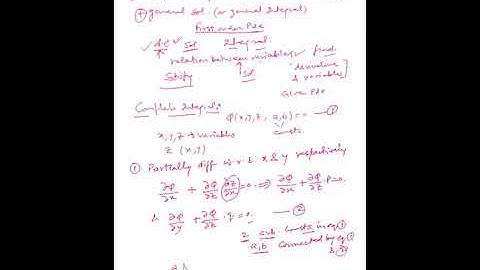 general sol. (or general Integral)
First order Pde
Sol Integral
relation between variables find
derivative
& variables
Satisfy Sol
Given Pde
Complete Integral:
φ(x,y,z, a,b) = 0 — ①
x,y,z → variables consts.
z (x,y)
① Partially diff w.r.t x & y respectively
∂φ/∂x + ∂φ/∂z (∂z/∂x) = 0 ⇒ ∂φ/∂x + ∂φ/∂z · p = 0
& ∂φ/∂y + ∂φ/∂z · q = 0 — ②
2 arb. consts in eq ①
a,b connected by eq ①